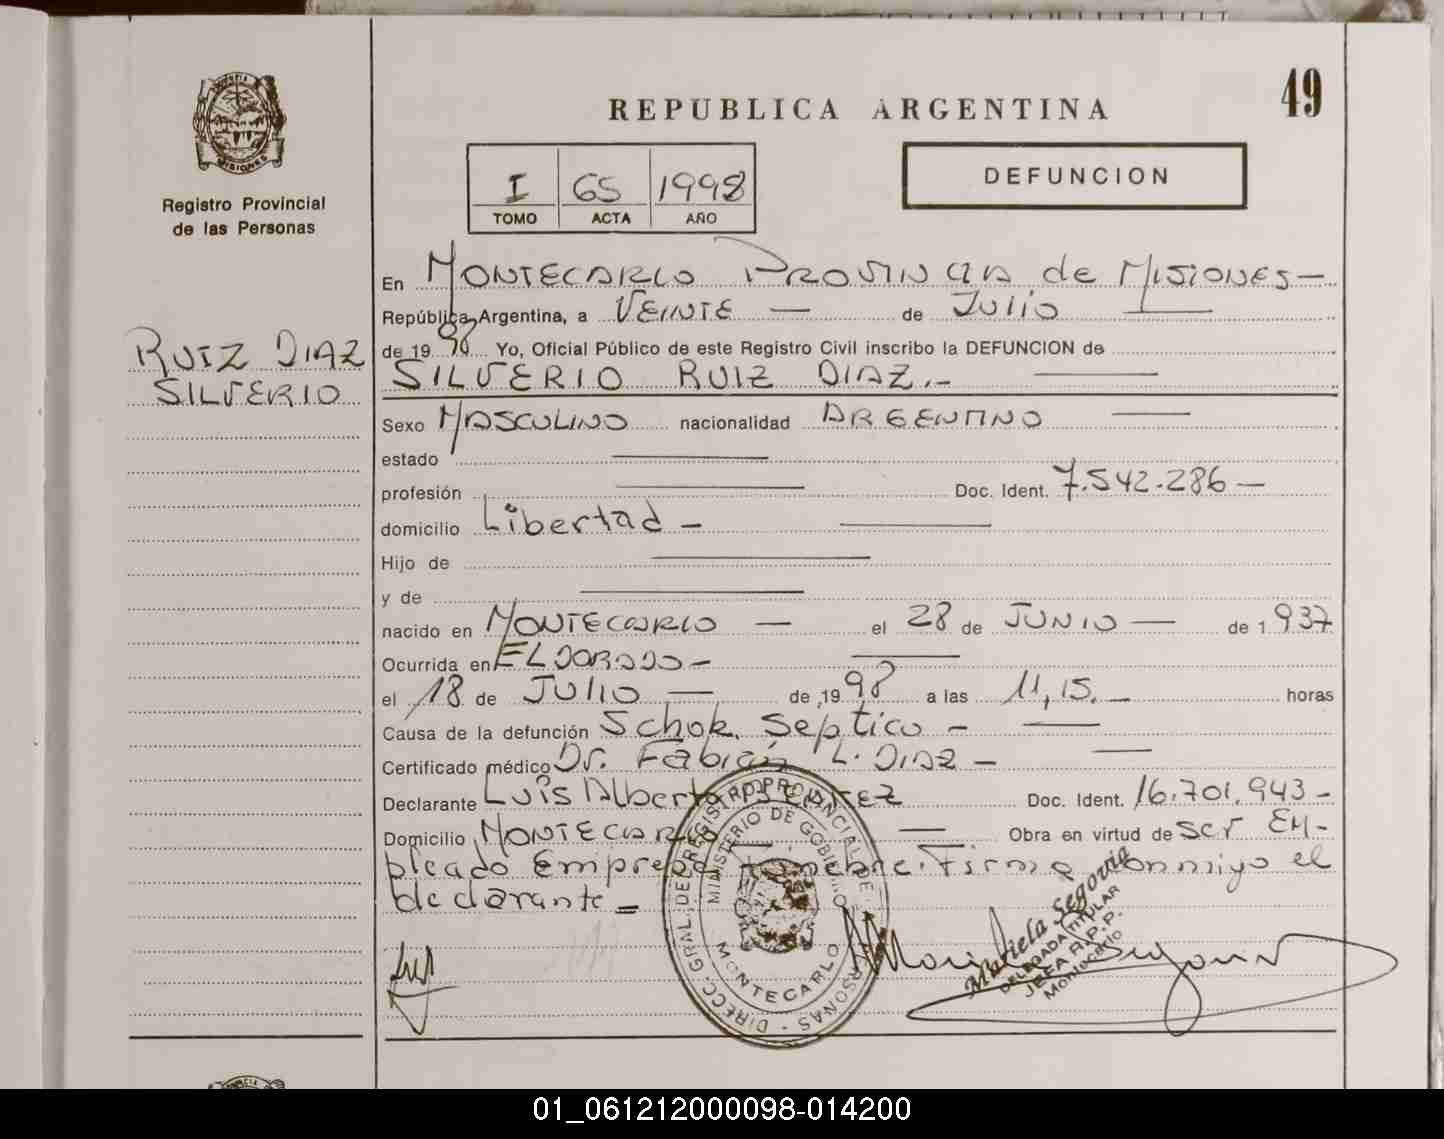 49
REPUBLICA ARGENTINA
PROVINCIA
MISIONES
Registro Provincial
de las Personas
I 65 1998
TOMO ACTA AÑO
DEFUNCION
En MONTECARLO PROVINCIA de MISIONES—
República Argentina, a VEINTE — de JULIO
de 19 98 Yo, Oficial Público de este Registro Civil inscribo la DEFUNCION de
SILVERIO RUIZ DIAZ.-
RUIZ DIAZ
SILVERIO
Sexo MASCULINO nacionalidad ARGENTINO
estado
profesión Doc. Ident. 7.542.286—
domicilio Libertad -
Hijo de
y de
nacido en MONTECARLO — el 28 de JUNIO — de 1.937
Ocurrida en ELDORADO-
el 18 de JULIO — de 19 98 a las 11,15.— horas
Causa de la defunción Schok. Septico -
Certificado médico Dr. Fabián L. DIAZ -
Declarante Luis Alberto Doc. Ident. 16.701.943-
Domicilio MONTECARLO — Obra en virtud de ser EM-
pleado Empresa Funebre. Firma conmigo el
declarante -
DIRECC. GRAL. DEL REGISTRO PROVINCIAL DE PERSONAS -
MINISTERIO DE GOBIERNO
MONTECARLO
Mariela Segovia
DELEGADA TITULAR
JEFA R.P.P.
Montecarlo
01_061212000098-014200